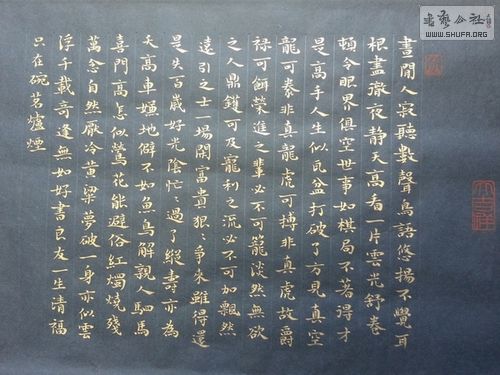 書藝公社
WWW.SHUFA.ORG
晝閒人寂聽數聲鳥語悠揚不覺耳
根盡徹夜靜天高看一片雲光舒卷
頓令眼界俱空世事如棋局不著得才
是高手人生似瓦盆打破了方見真空
龍可豢非真龍虎可搏非真虎故爵
祿可餌榮進之輩必不可籠淡然無欲
之人鼎鑊可及寵利之流必不可加飄然
遠引之士一場閒富貴狠〻爭來雖得還
是失百歲好光陰忙〻過了縱壽亦為
夭高車嫌地僻不如魚鳥解親人駟馬
喜門高怎似鶯花能避俗紅燭燒殘
萬念自然厭冷黃粱夢破一身亦似雲
浮千載奇逢無如好書良友一生清福
只在碗茗爐煙
大吉祥